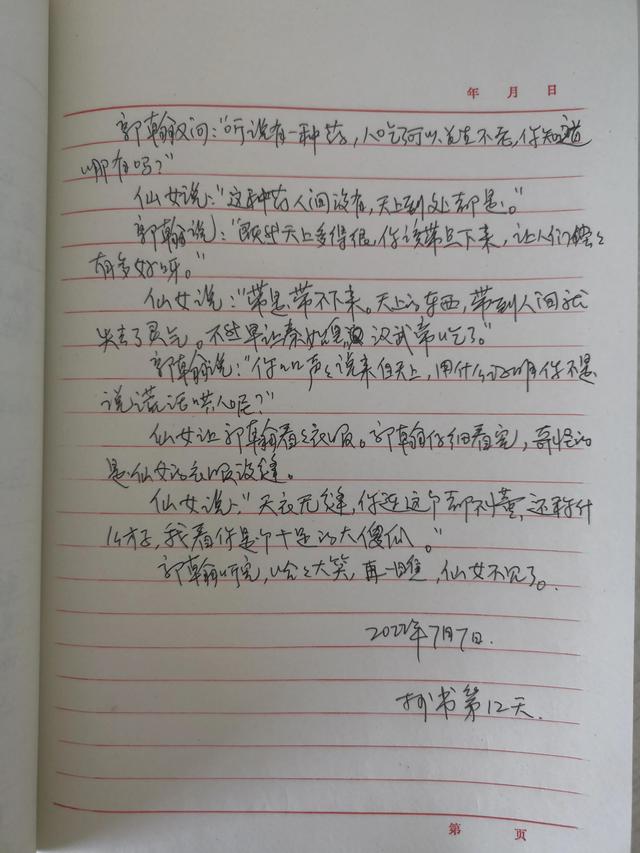 年 月 日
郭翰又问:"听说有一种药,人吃了可以长生不老,你知道
哪有吗?"
仙女说:"这种药人间没有,天上到处都是。"
郭翰说:"既然天上多得很,你该带点下来,让人们尝尝
有多好呀。"
仙女说:"带是带不下来。天上的东西,带到人间就
失去了灵气。不然早让秦始皇、汉武帝吃了。"
郭翰说:"你口口声声说来自天上,用什么证明你不是
说谎话哄人呢?"
仙女让郭翰看看衣服。郭翰仔细看完,奇怪的
是仙女的衣服没缝。
仙女说:"天衣无缝,你连这个都不懂,还称什
么才子,我看你是个十足的大傻瓜。"
郭翰听完,哈哈大笑,再一瞧,仙女不见了。
2022年7月7日.
抄书第12天.
第 页